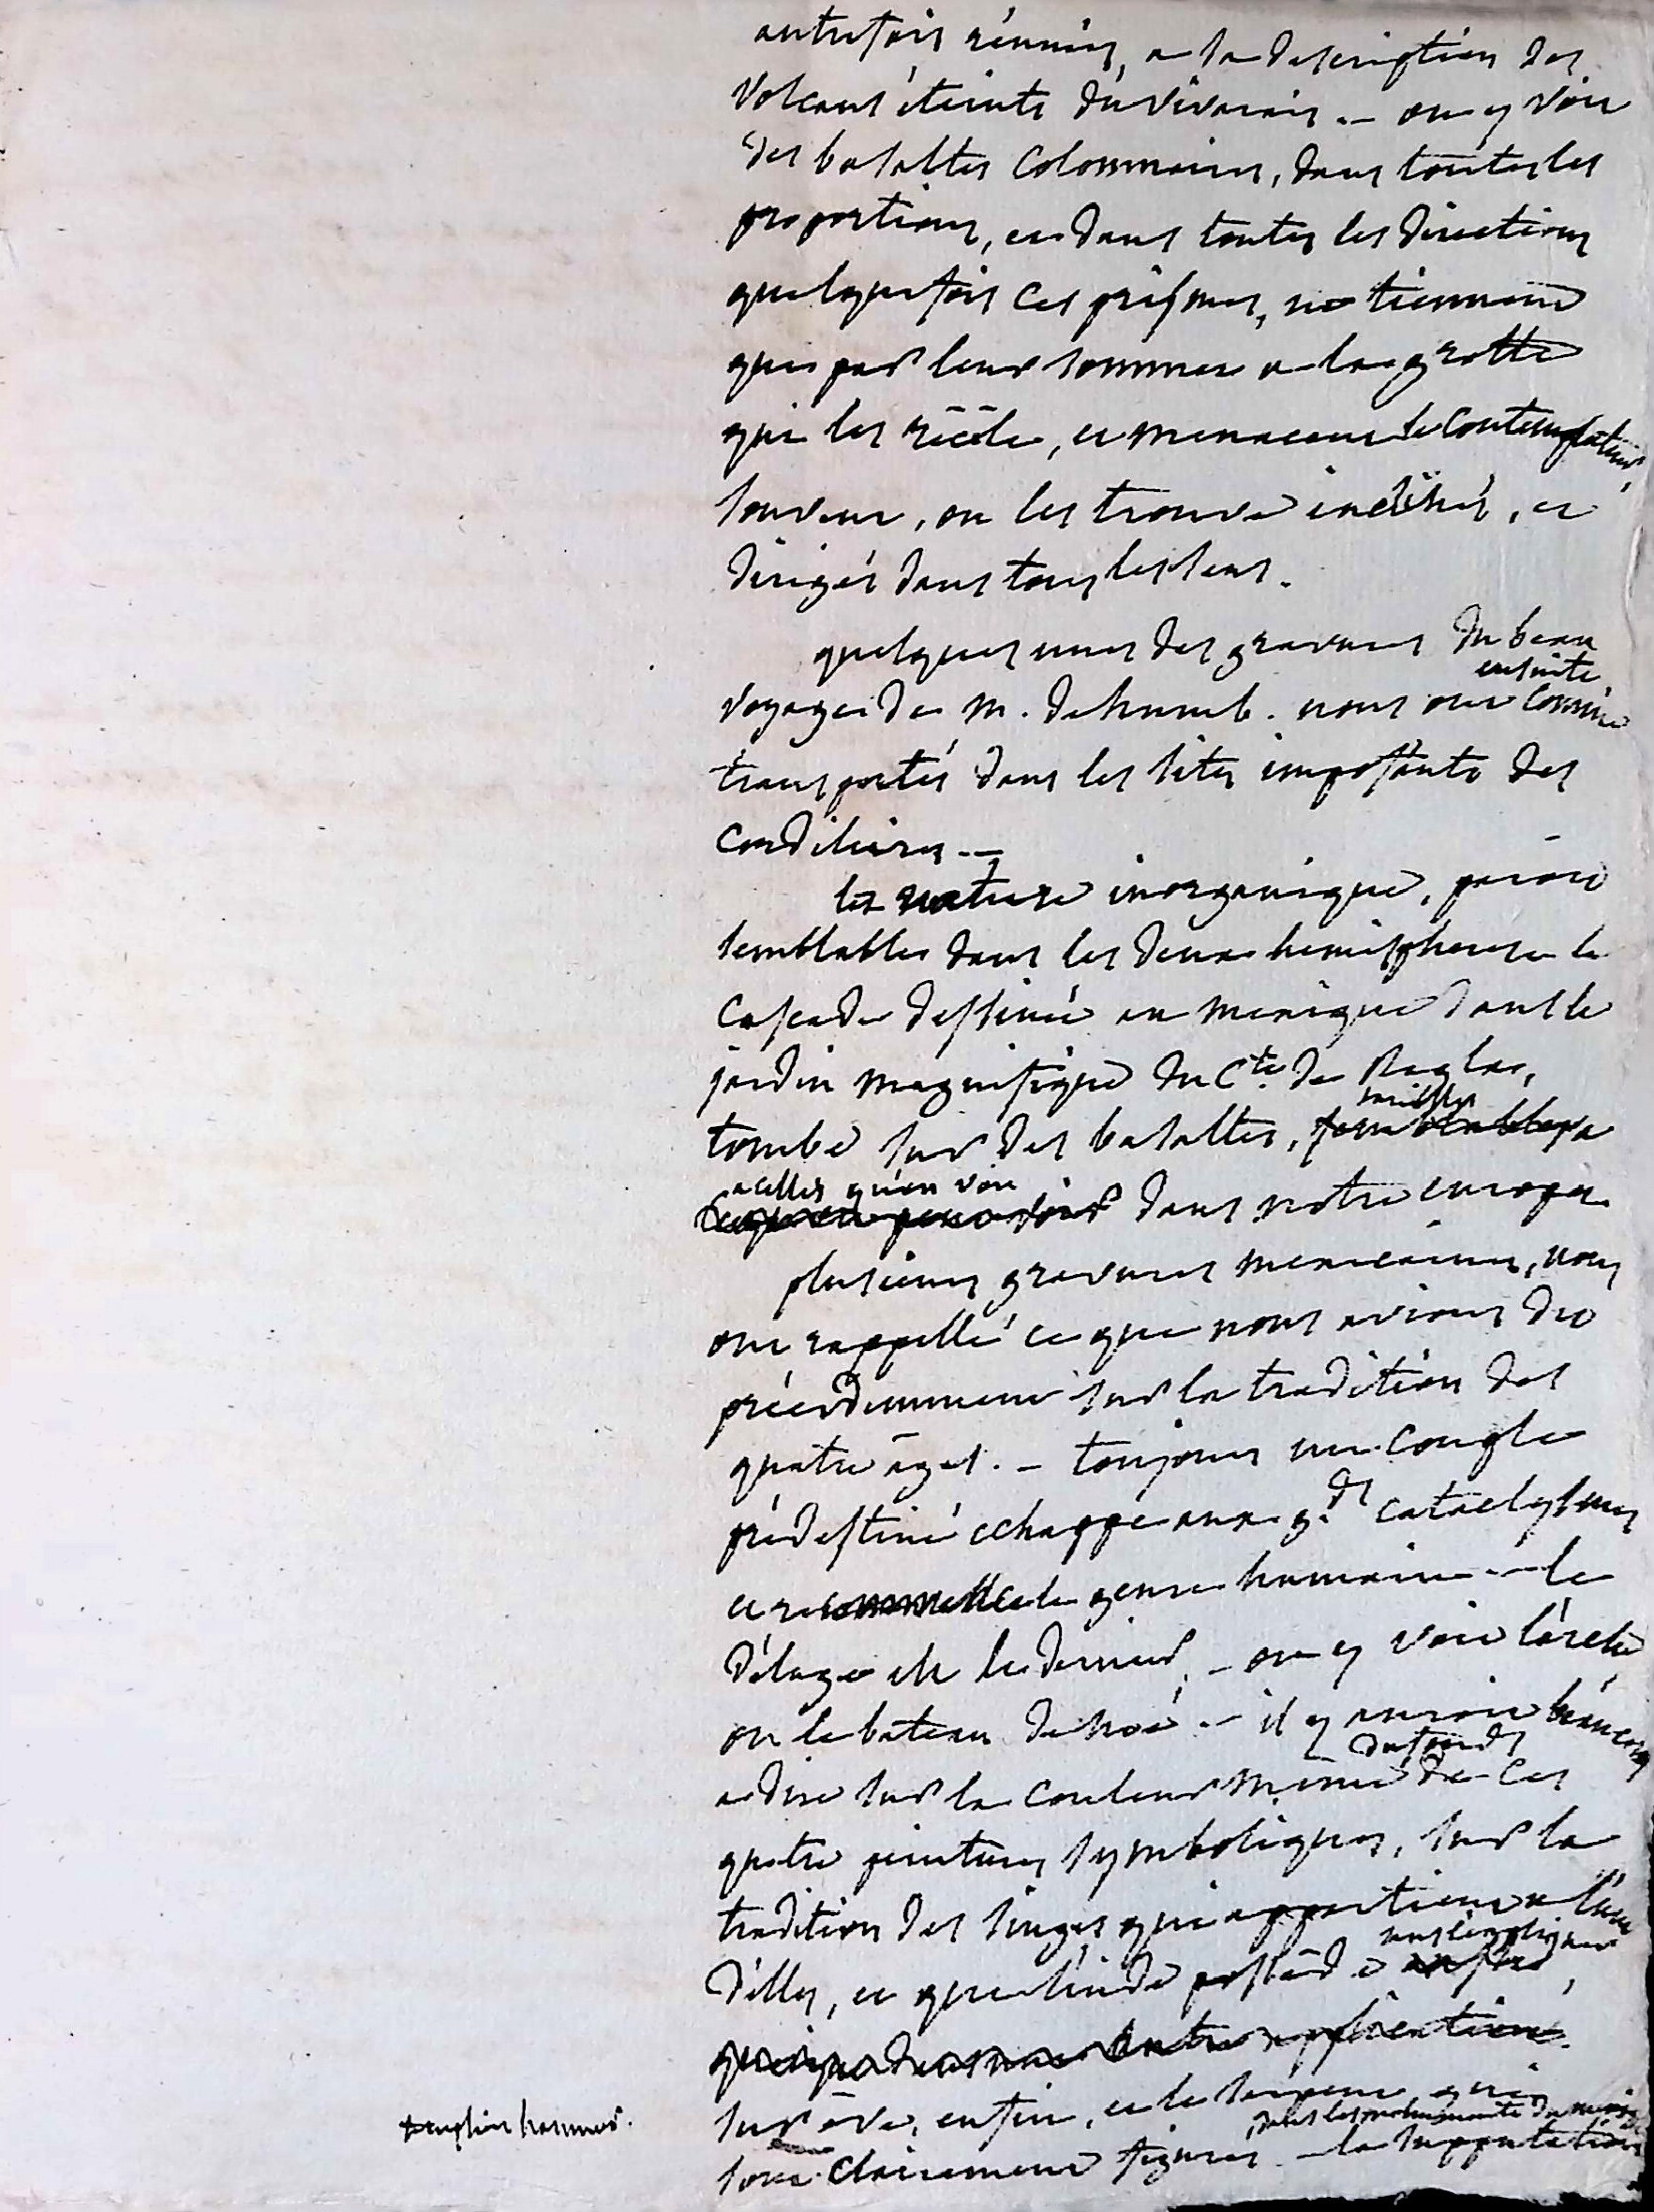 autrefois réunies, a la description des
volcans éteints du vivarais. – on y voit
des basaltes colonnaires, dans toutes les
proportions, et dans toutes les directions
quelquefois ces prismes, ne tiennent
que par leur sommet a la grotte
qui les récèle, et menacent le contemplateur,
souvent, on les trouve inclinés, et
dirigés dans tous les sens.
quelques unes des gravures du beau
ensuite
voyage de m. de humb. nous ont comme
transportés dans les sites imposants des
cordilières. –
la nature inorganique, paroit
semblable dans les deux hemispheres la
cascade dessinée au mexique dans le
jardin magnifique du Cte. de Regla,
pareilles
tombe sur des basaltes, semblables
a celles qu'on voit
dans notre europe
plusieurs gravures mexicaines, nous
ont rappellé ce que nous avions dit
précédemment sur la tradition des
quatre ages. – toujours un couple
prédestiné echappe aux gds cataclysmes
et recommence le genre humain. – le
déluge est le dernier. – on y voit l'arche
ou le bateau de noé. – il y auroit beaucoup
du fonds
a dire sur la couleur même de ces
quatre peintures symboliques, sur la
tradition des singes qui appartient a l'une
sans l'expliquer
d'elles, et que l'inde possède
sur eve, enfin, et le serpent qui
dans les monuments du
sont clairement figurés – la supputation